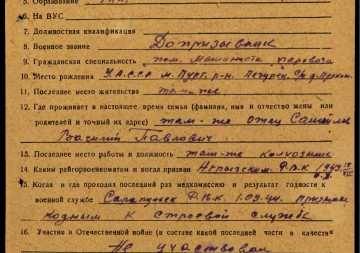 5. Образование
6. На ВУС
7. Должностная квалификация
8. Военное звание Допризывник
9. Гражданская специальность пом. Машиниста паровоза
10. Место рождения УАССР М. Пург. р-н.
11. Последнее место жительства там-же
12. Где проживает в настоящее время семья (фамилия, имя и отчество жены или
родителей и точный их адрес) там-же отец
Василий Павлович
13. Последнее место работы и должность там-же колхозник
14. Каким райгорвоенкоматом и когда призван Агрызским. Р.В.К 1943
15. Когда и где проходил последний раз медкомиссию и результат годности к
военной службе Сарапульск Р.В.К. 1.09.44. признан
годным к строевой службе
16. Участие в Отечественной войне (в составе какой последней части в качестве
Не участвовал